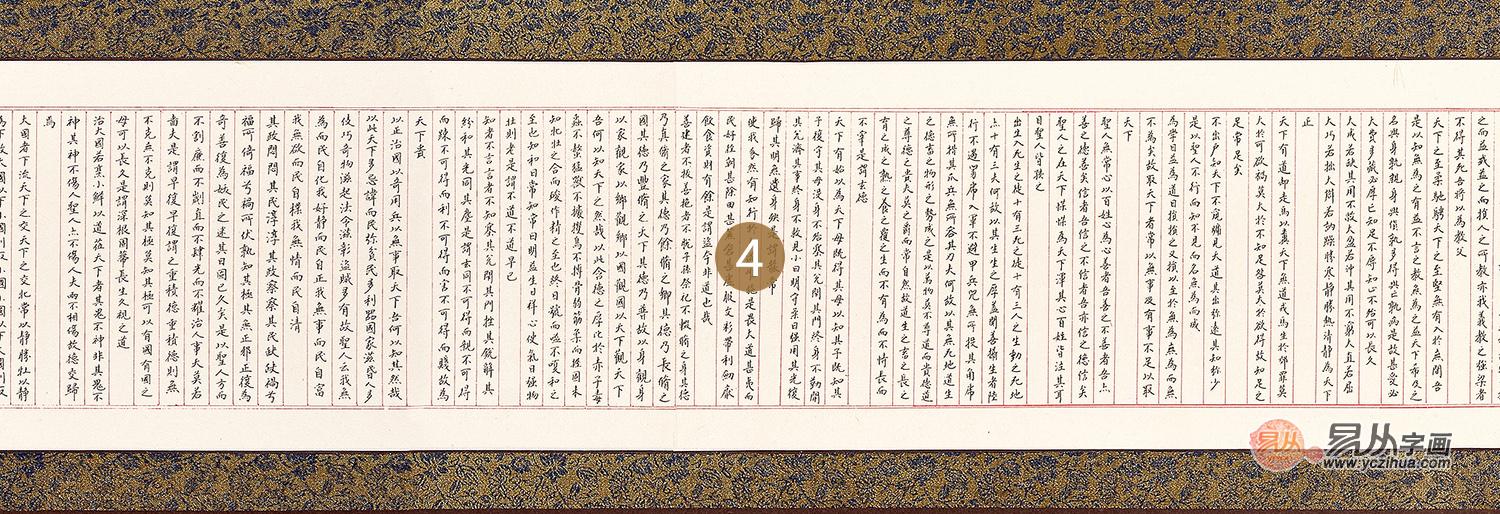 之而益或益之而損人之所教亦我義教之強梁者
不得其死吾將以為教父
天下之至柔馳騁天下之至堅無有入於無間吾
是以知無為之有益不言之教無為之益天下希及之
名與身孰親身與貨孰多得與亡孰病是故甚愛必
大費多藏必厚亡知足不辱知止不殆可以長久
大成若缺其用不敝大盈若沖其用不窮大直若屈
大巧若拙大辯若訥躁勝寒靜勝熱清靜為天下
正
天下有道却走馬以糞天下無道戎馬生於郊罪莫
大於可欲禍莫大於不知足咎莫大於欲得故知足之
足常足矣
不出戶知天下不窺牖見天道其出彌遠其知彌少
是以聖人不行而知不見而名無為而成
為學日益為道日損損之又損以至於無為無為而無
不為矣故取天下者常以無事及有事不足以取
天下
聖人無常心以百姓心為心善者吾善之不善者吾亦
善之德善矣信者吾信之不信者吾亦信之德信矣
聖人之在天下惵惵為天下渾其心百姓皆注其耳
目聖人皆孩之
出生入死生之徒十有三死之徒十有三人之生動之死地
亦十有三夫何故以其生生之厚蓋聞善攝生者陸
行不遇兕虎入軍不避甲兵兕無所投其角虎
無所措其爪兵無所容其刃夫何故以其無死地道生
之德畜之物形之勢成之是以萬物莫不尊道而貴德道
之尊德之貴夫莫之爵而常自然故道生之畜之長之
育之成之熟之養之覆之生而不有為而不恃長而
不宰是謂玄德
天下有始以為天下母既得其母以知其子既知其
子復守其母沒身不殆塞其兌閉其門終身不勤開
其兌濟其事終身不救見小曰明守柔曰強用其光復
歸其明無遺身殃是謂襲常
使我介然有知行於大道唯施是畏大道甚夷而
民好徑朝甚除田甚蕪倉甚虛服文彩帶利劍厭
飲食資財有餘是謂盜夸非道也哉
善建者不拔善抱者不脫子孫祭祀不輟脩之身其德
乃真脩之家其德乃餘脩之鄉其德乃長脩之
國其德乃豐脩之天下其德乃普故以身觀身
以家觀家以鄉觀鄉以國觀國以天下觀天下
吾何以知天下之然哉以此含德之厚比於赤子毒
蟲不螫猛獸不據攫鳥不搏骨弱筋柔而握固未
知牝牡之合而峻作精之至也終日號而嗌不嗄和之
至也知和曰常知常曰明益生曰祥心使氣曰強物
壯則老是謂不道不道早已
知者不言言者不知塞其兌閉其門挫其銳解其
紛和其光同其塵是謂玄同不可得而親不可得
而疎不可得而利不可得而害不可得而貴不可得而賤故為
天下貴
以正治國以奇用兵以無事取天下吾何以知其然哉
以此天下多忌諱而民彌貧民多利器國家滋昏人多
伎巧奇物滋起法令滋彰盜賊多有故聖人云我無
為而民自化我好靜而民自正我無事而民自富
我無欲而民自樸我無情而民自清
其政悶悶其民淳淳其政察察其民缺缺禍兮
福所倚福兮禍所伏孰知其極其無正邪正復為
奇善復為妖民之迷其日固已久矣是以聖人方而
不割廉而不劌直而不肆光而不耀治人事天莫若
嗇夫是謂早復早復謂之重積德重積德則無
不克無不克則莫知其極莫知其極可以有國有國之
母可以長久是謂深根固蔕長生久視之道
治大國若烹小鮮以道莅天下者其鬼不神非其鬼不
神其神不傷人聖人亦不傷人夫兩不相傷故德交歸
焉
大國者下流天下之交天下之交牝常以靜勝牡以靜
4
易从字画
www.yczihua.com